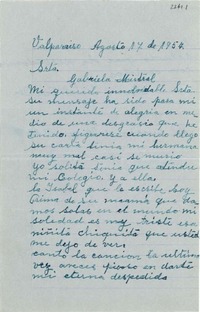 Valparaiso Agosto 17 de 1954.
Srta.
Gabriela Mistral
Mi querida inolvidable Srta
su mensage ha sido para mi
un instante de alegria en me
dio de una desgracia que he
tenido, figurese cuando llego
su carta tenia mi hermana
muy mal casi se murio
yo solita tenia que atender
mi Colegio, y a ella
la Isabel que le escribe. Soy
de su mesma que da
mos solas en el mundo mi
soledad es muy triste esa
niñita chiquita que usted
me dejo de ver,
canto la cancion la ultima
vez, aveces pienso en darte
mi eterna despedida